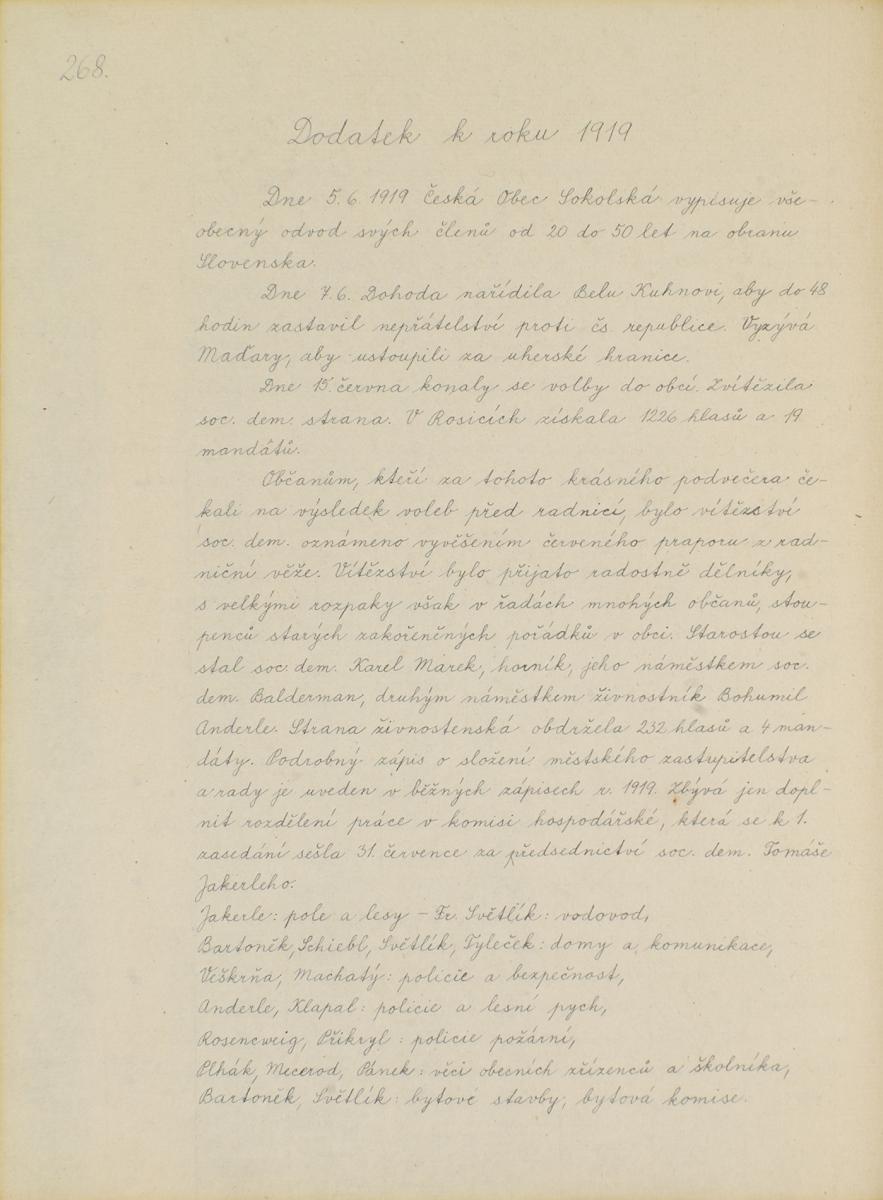 268.
Dodatek k roku 1919
Dne 5. 6. 1919 Česká Obec Sokolská vypisuje vše-
obecný odvod svých členů od 20 do 50 let na obranu
Slovenska.
Dne 7. 6. Dohoda nařídila Belu Kuhnovi, aby do 48
hodin zastavil nepřátelství proti čs. republice. Vyzývá
Maďary, aby ustoupili za uherské hranice.
Dne 15. června konaly se volby do obcí. Zvítězila
soc. dem. strana. V Rosicích získala 1226 hlasů a 19
mandátů.
Občanům, kteří za tohoto krásného podvečera če-
kali na výsledek voleb před radnicí, bylo vítězství
soc. dem. oznámeno vyvěšením červeného praporu z rad-
niční věže. Vítězství bylo přijato radostně dělníky,
s velkými rozpaky však v řadách mnohých občanů, stou-
penců starých zakořeněných pořádků v obci. Starostou se
stal soc. dem. Karel Marek, horník, jeho náměstkem soc.
dem. Balderman, druhým náměstkem živnostník Bohumil
Anderle. Strana živnostenská obdržela 232 hlasů a 4 man-
dáty. Podrobný zápis o složení městského zastupitelstva
a rady je uveden v běžných zápisech r. 1919. Zbývá jen dopl-
nit rozdělení práce v komisi hospodářské, která se k 1.
zasedání sešla 31. července za předsednictví soc. dem. Tomáše
Jakerleho:
Jakerle: pole a lesy – Fr. Světlík: vodovod,
Bartoněk, Schiebl, Světlík, Tyleček: domy a komunikace,
Veškrňa, Machatý: policie a bezpečnost,
Anderle, Klapal: policie a lesní pych,
Rosencweig, Přikryl: policie požární,
Plhák, Mecerod, Pánek: věci obecních zřízenců a školníka,
Bartoněk, Světlík: bytové stavby, bytová komise.